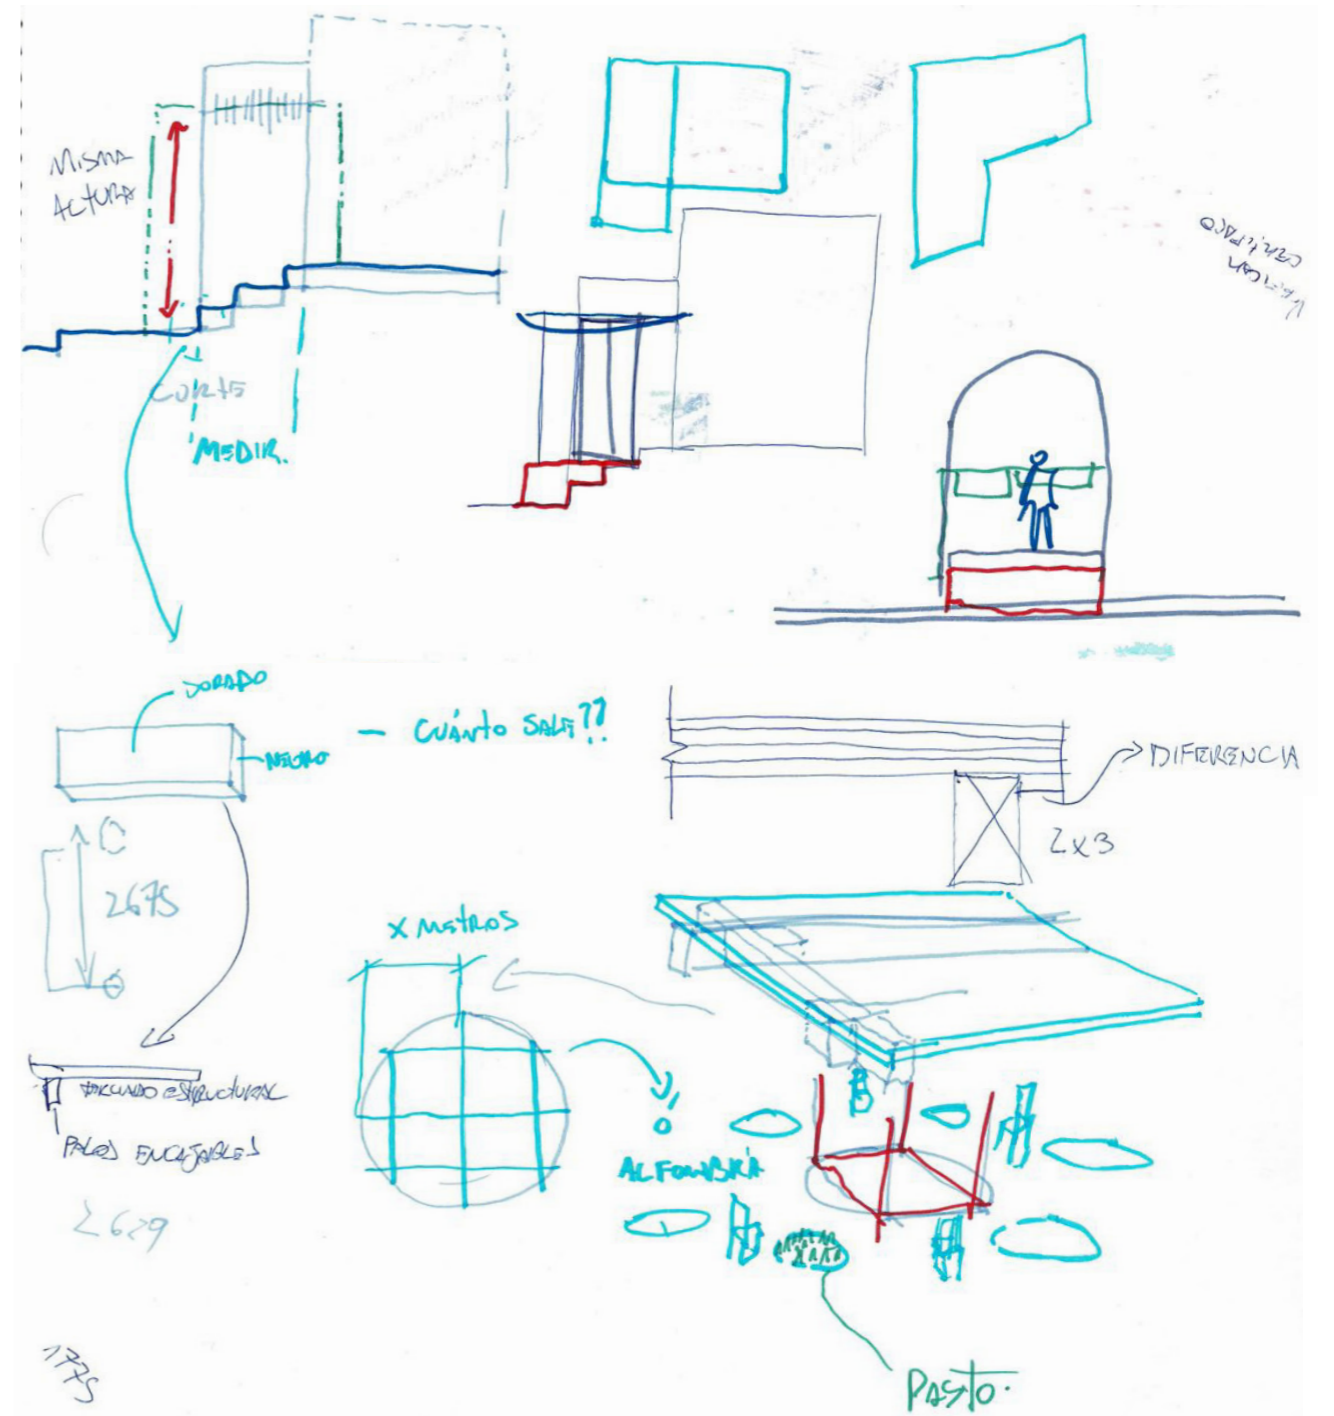 MISMA
ALTURA
CORTE
MEDIR.
DORADO
NEGRO
- CUÁNTO SALE??
DIFERENCIA
2x3
2675
X METROS
ESTRUCTURAL
PALOS ENCAJABLES
ALFOMBRA
2629
1775
PASTO.